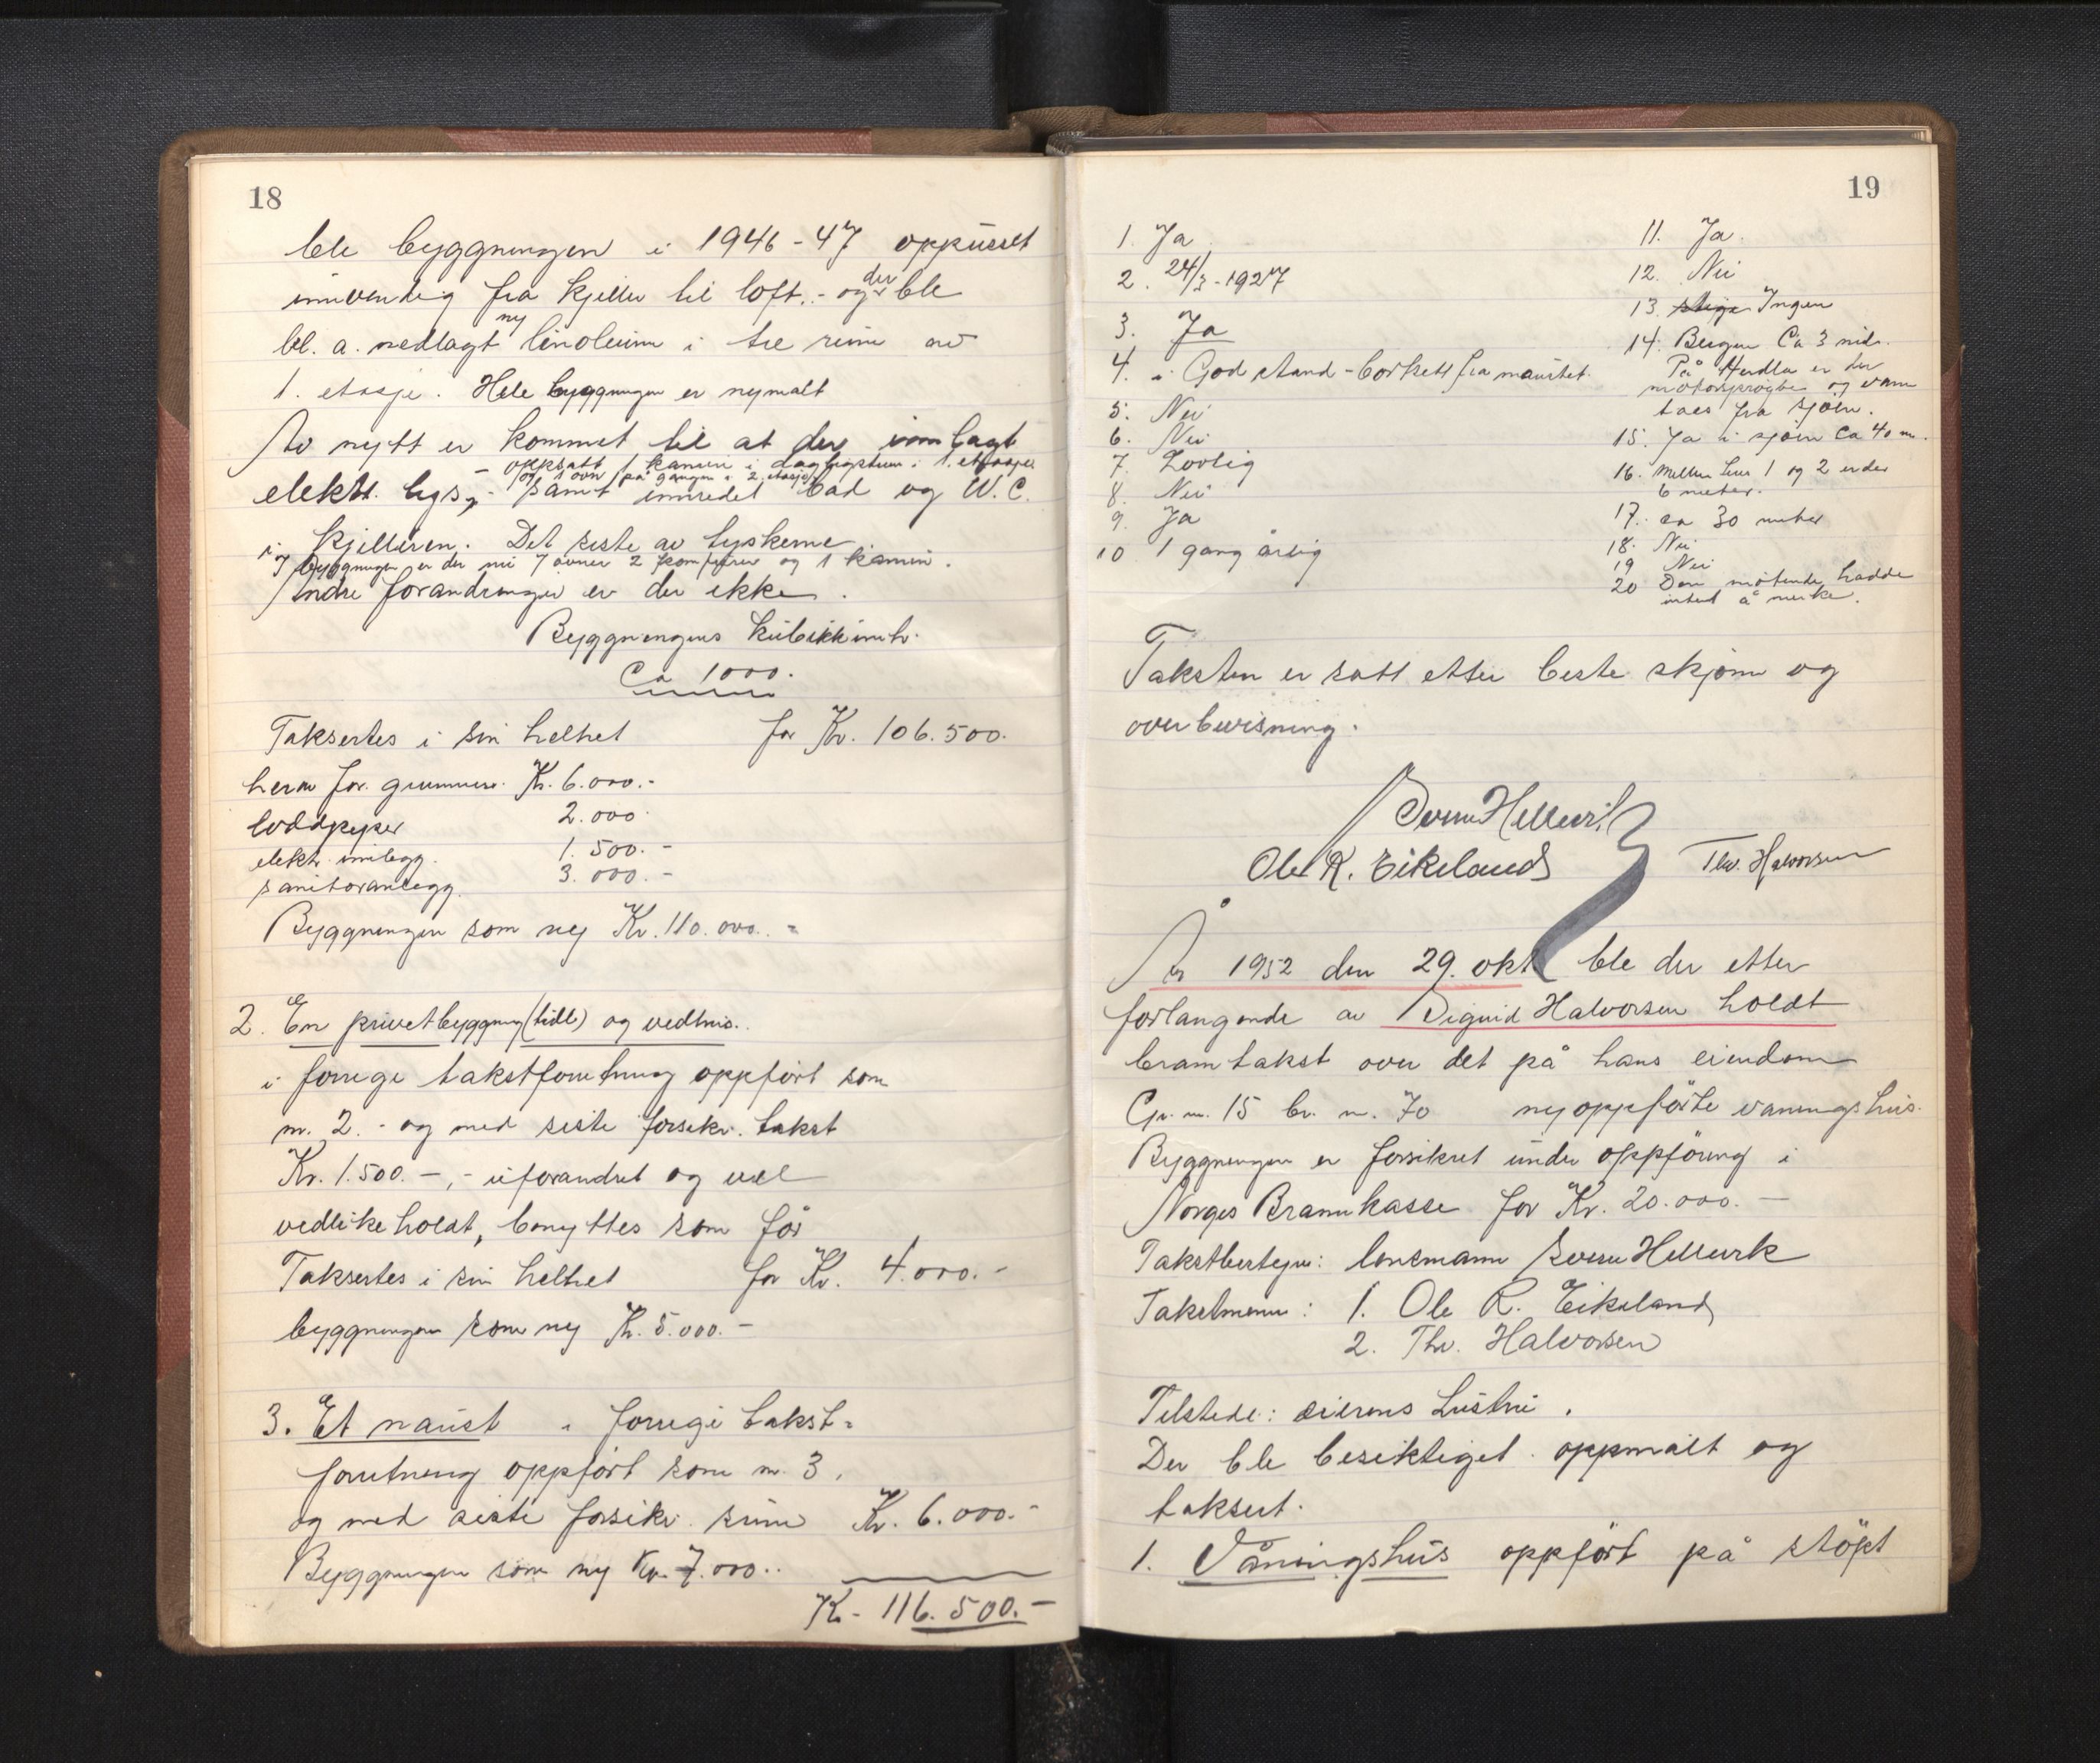 18
ble byggningen i 1946-47 oppusset
innvendig fra kjeller til loft. - og der ble
bl. a. nedlagt ny linoleum i tre rum av
1. etasje. Hele byggningen er nymalt
Av nytt er kommet til at der innlagt
- oppsatt 1 kamin i dagligstuen i 1. etasje
og 1 ovn på gangen i 2. etasje
elektr. lys, - samt innredet bad og W.C.
i kjelleren. Det siste av tyskerne.
I byggningen er der nu 7 ovner 2 komfyrer og 1 kamin.
Andre forandringer er der ikke.
Byggningens kubikkinnh.
Ca 1000.
Taksertes i sin helhet for Kr. 106.500.
herav for grunnmur. Kr. 6.000.-
loddpiper 2.000
elektr. innlegg. 1.500.-
sanitæranlegg. 3.000.-
Byggningen som ny Kr. 110.000.-
2. En privetbyggning (tidl) og vedhus.
i forrige takstforretning oppført som
nr. 2. - og med siste forsikr. takst
Kr. 1.500.-, - uforandret og vel
vedlikeholdt, benyttes som før
Taksertes i sin helhet for Kr. 4.000.-
byggningen som ny Kr. 5.000.-
3. Et naust i forrige takst=
forretning oppført som nr. 3.
og med siste forsikr. sum Kr. 6.000.-
Byggningen som ny Kr. 7.000..
Kr. 116.500.-
19
1. Ja
2. 24/3-1927
3. Ja
4. i God stand - bortsett fra naustet.
5. Nei
6. Nei
7. Lovlig
8. Nei
9. Ja
10 1 gang årlig
11. Ja.
12. Nei
13. stige Ingen
14. Bergen Ca 3 mil.
På Herdla er der
motorsprøyte og vann
taes fra sjøen.
15. Ja i sjøen ca 40 m.
16. Mellem hus 1 og 2 er der
6 meter.
17. ca 30 meter
18. Nei
19 Nei
20 Den møtende hadde
intet å merke.
Taksten er satt etter beste skjønn og
overbevisning.
Sverre Hellevik
Ole R. Eikeland Thv. Halvorsen
År 1952 den 29. okt ble der etter
forlangende av Sigurd Halvorsen holdt
branntakst over det på hans eiendom
Gr. nr. 15 br. nr. 70 nyoppførte våningshus.
Byggningen er forsikret under oppføring i
Norges Brannkasse for Kr. 20.000.-
Takstbestyrer: lensmann Sverre Hellevik
Takstmenn: 1. Ole R. Eikeland
2. Thv. Halvorsen
Tilstede: eierens hustru.
Der ble besiktiget. oppmålt og
taksert.
1. Våningshus oppført på støpt